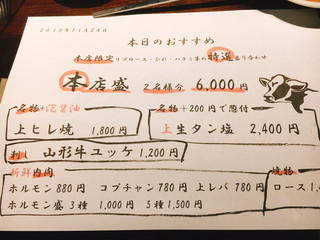 2018年11月24日
本日のおすすめ
本店限定 リブロース・ひれ・ハラミ等の特選盛り合わせ
本店盛 2名様分 6,000円
名物+泡醤油
上ヒレ焼 1,800円
名物+200円で葱付
上生タン塩 2,400円
刺し 山形牛ユッケ 1,200円
新鮮内肉
ホルモン 880円 コプチャン 780円 上レバ 780円
ホルモン盛 3種 1,000円 5種 1,500円
焼物
ロース